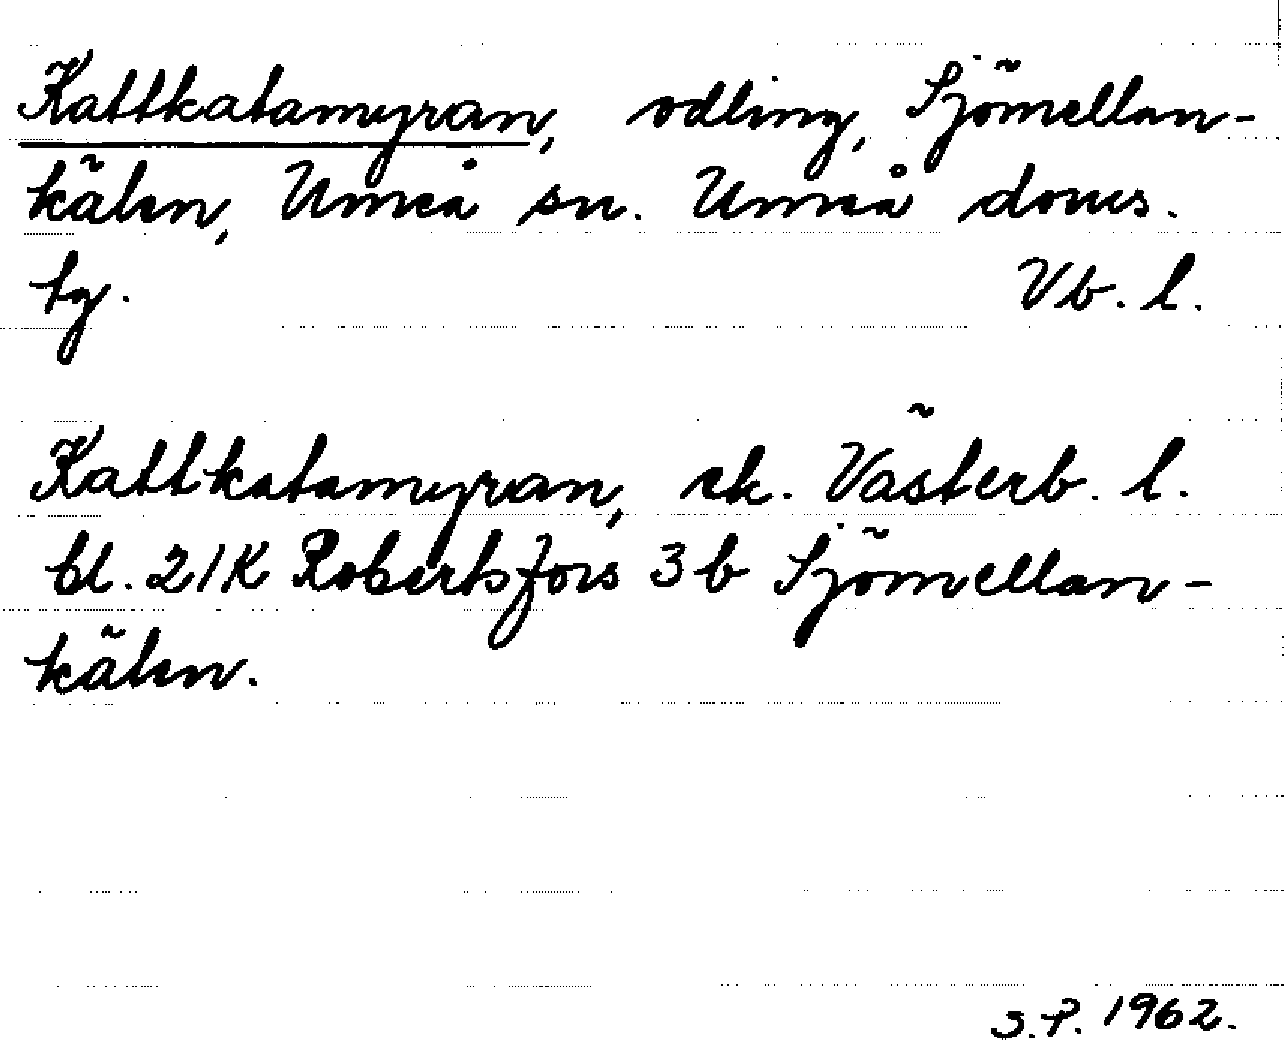 Kattkatamyran, odling, Sjömellan-
kälen, Umeå sn. Umeå doms.
tg. Vb. l.
Kattkatamyran, ek. Västerb. l.
bl. 21K Robertsfors 3b Sjömellan-
kälen.
S.P. 1962.